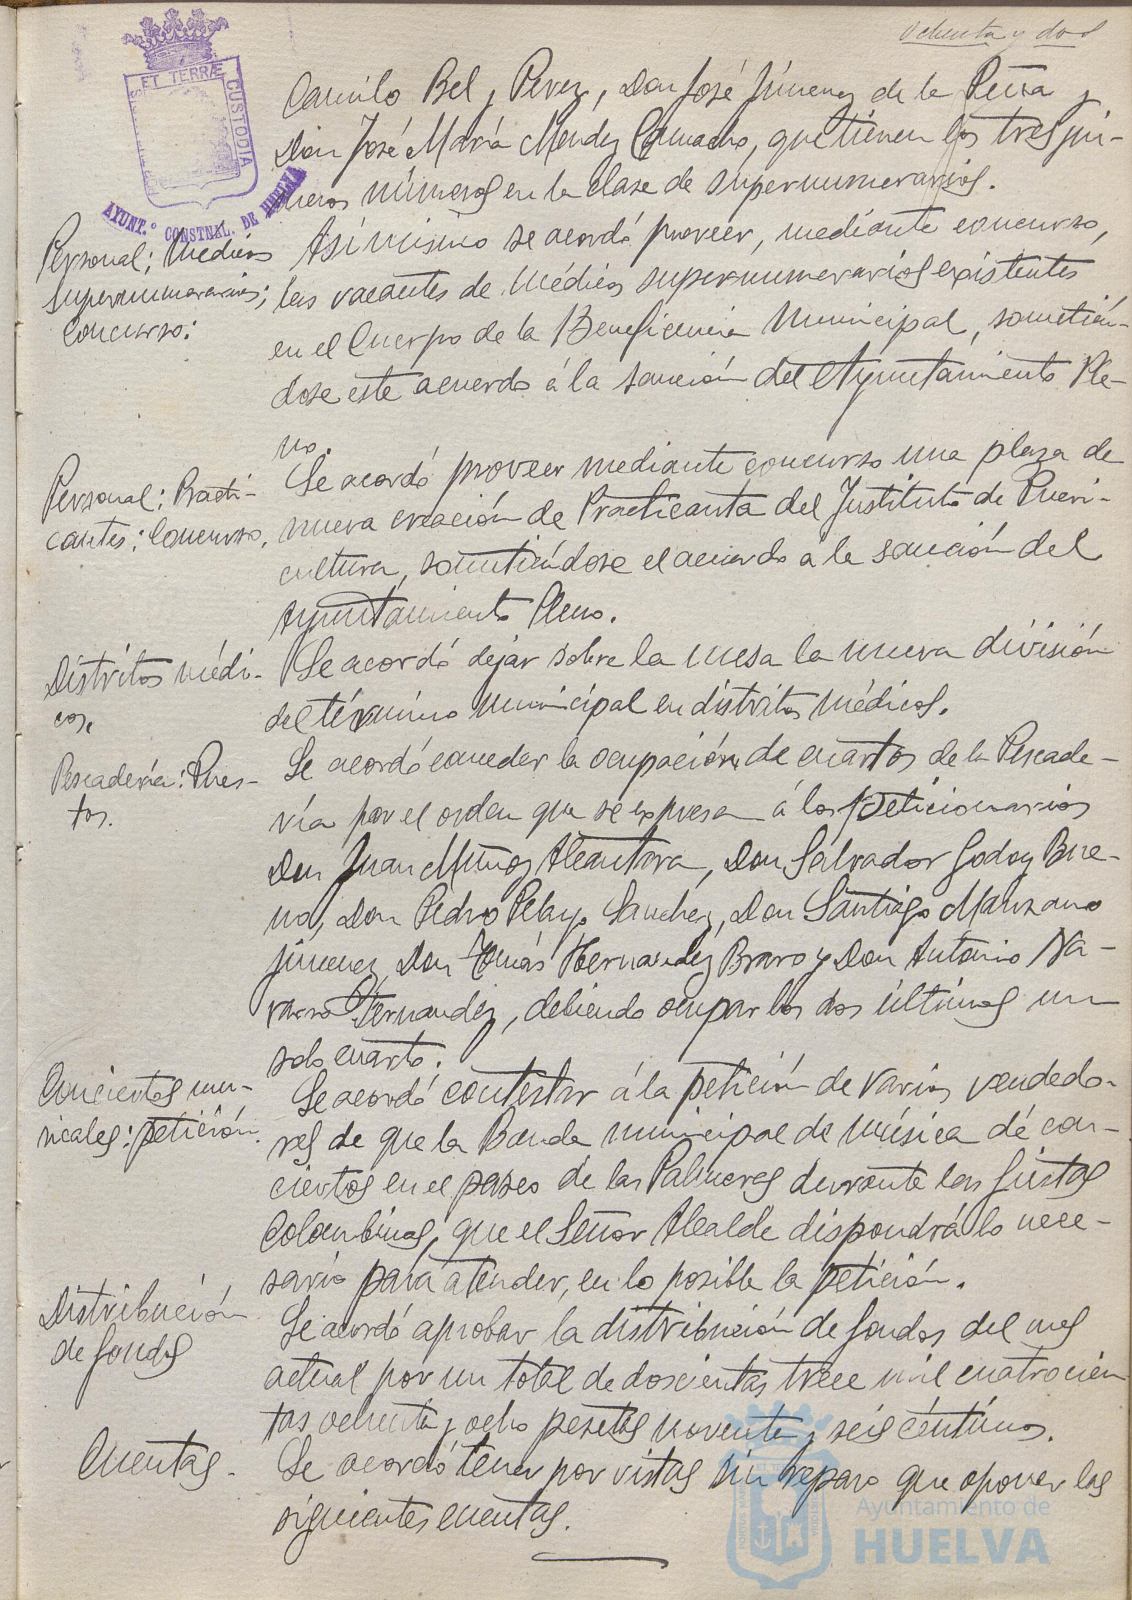 ochenta y dos
ET TERRÆ
CUSTODIA
AYUNT.º CONSTNAL. DE HUELVA
Camilo Bel y Perez, Don José Jimenez de la Peña y
Don José María Mendez Camacho, que tienen los tres pri-
meros números en la clase de supernumerarios.
Personal; Medicos
supernumerarios;
Concurso:
Asimismo se acordó proveer, mediante concurso,
las vacantes de Médicos supernumerarios existentes
en el Cuerpo de la Beneficencia Municipal, sometién-
dose este acuerdo á la sanción del Ayuntamiento Ple-
no.
Personal: Practi-
cantes; Concurso.
Se acordó proveer mediante concurso una plaza de
nueva creación de Practicanta del Instituto de Pueri-
cultura, sometiéndose el acuerdo a la sanción del
Ayuntamiento Pleno.
Distritos médi-
cos.
Se acordó dejar sobre la mesa la nueva división
del término municipal en distritos médicos.
Pescadería: Pues-
tos.
Se acordó conceder la ocupación de cuartos de la Pescade-
ría por el orden que se expresa á los peticionarios
Don Juan Muñoz Alcantara, Don Salvador Godoy Bue-
no, Don Pedro Pelayo Sanchez, Don Santiago Manzano
Jimenez, Don Tomás Hernandez Bravo y Don Antonio Na-
varro Fernandez, debiendo ocupar los dos últimos un
solo cuarto.
Conciertos mu-
sicales: petición.
Se acordó contestar á la petición de varios vendedo-
res de que la Banda municipal de música dé con-
ciertos en el paseo de las Palmeras durante las fiestas
Colombinas, que el Señor Alcalde dispondrá lo nece-
sario para atender, en lo posible la petición.
Distribución
de fondos
Se acordó aprobar la distribución de fondos del mes
actual por un total de doscientas trece mil cuatrocien
tas ochenta y ocho pesetas noventa y seis céntimos.
Cuentas.
Se acordó tener por vistas sin reparo que oponer las
siguientes cuentas.
Ayuntamiento de
HUELVA